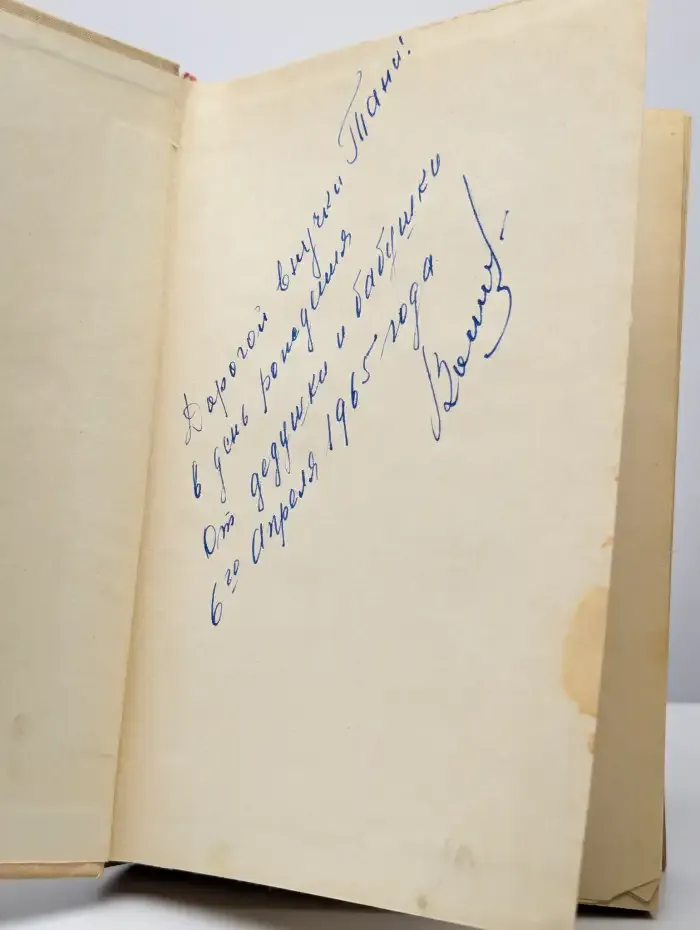 Дорогой внучки Тани!
в день рождения
От дедушки и бабушки
6го Апреля 1965 года